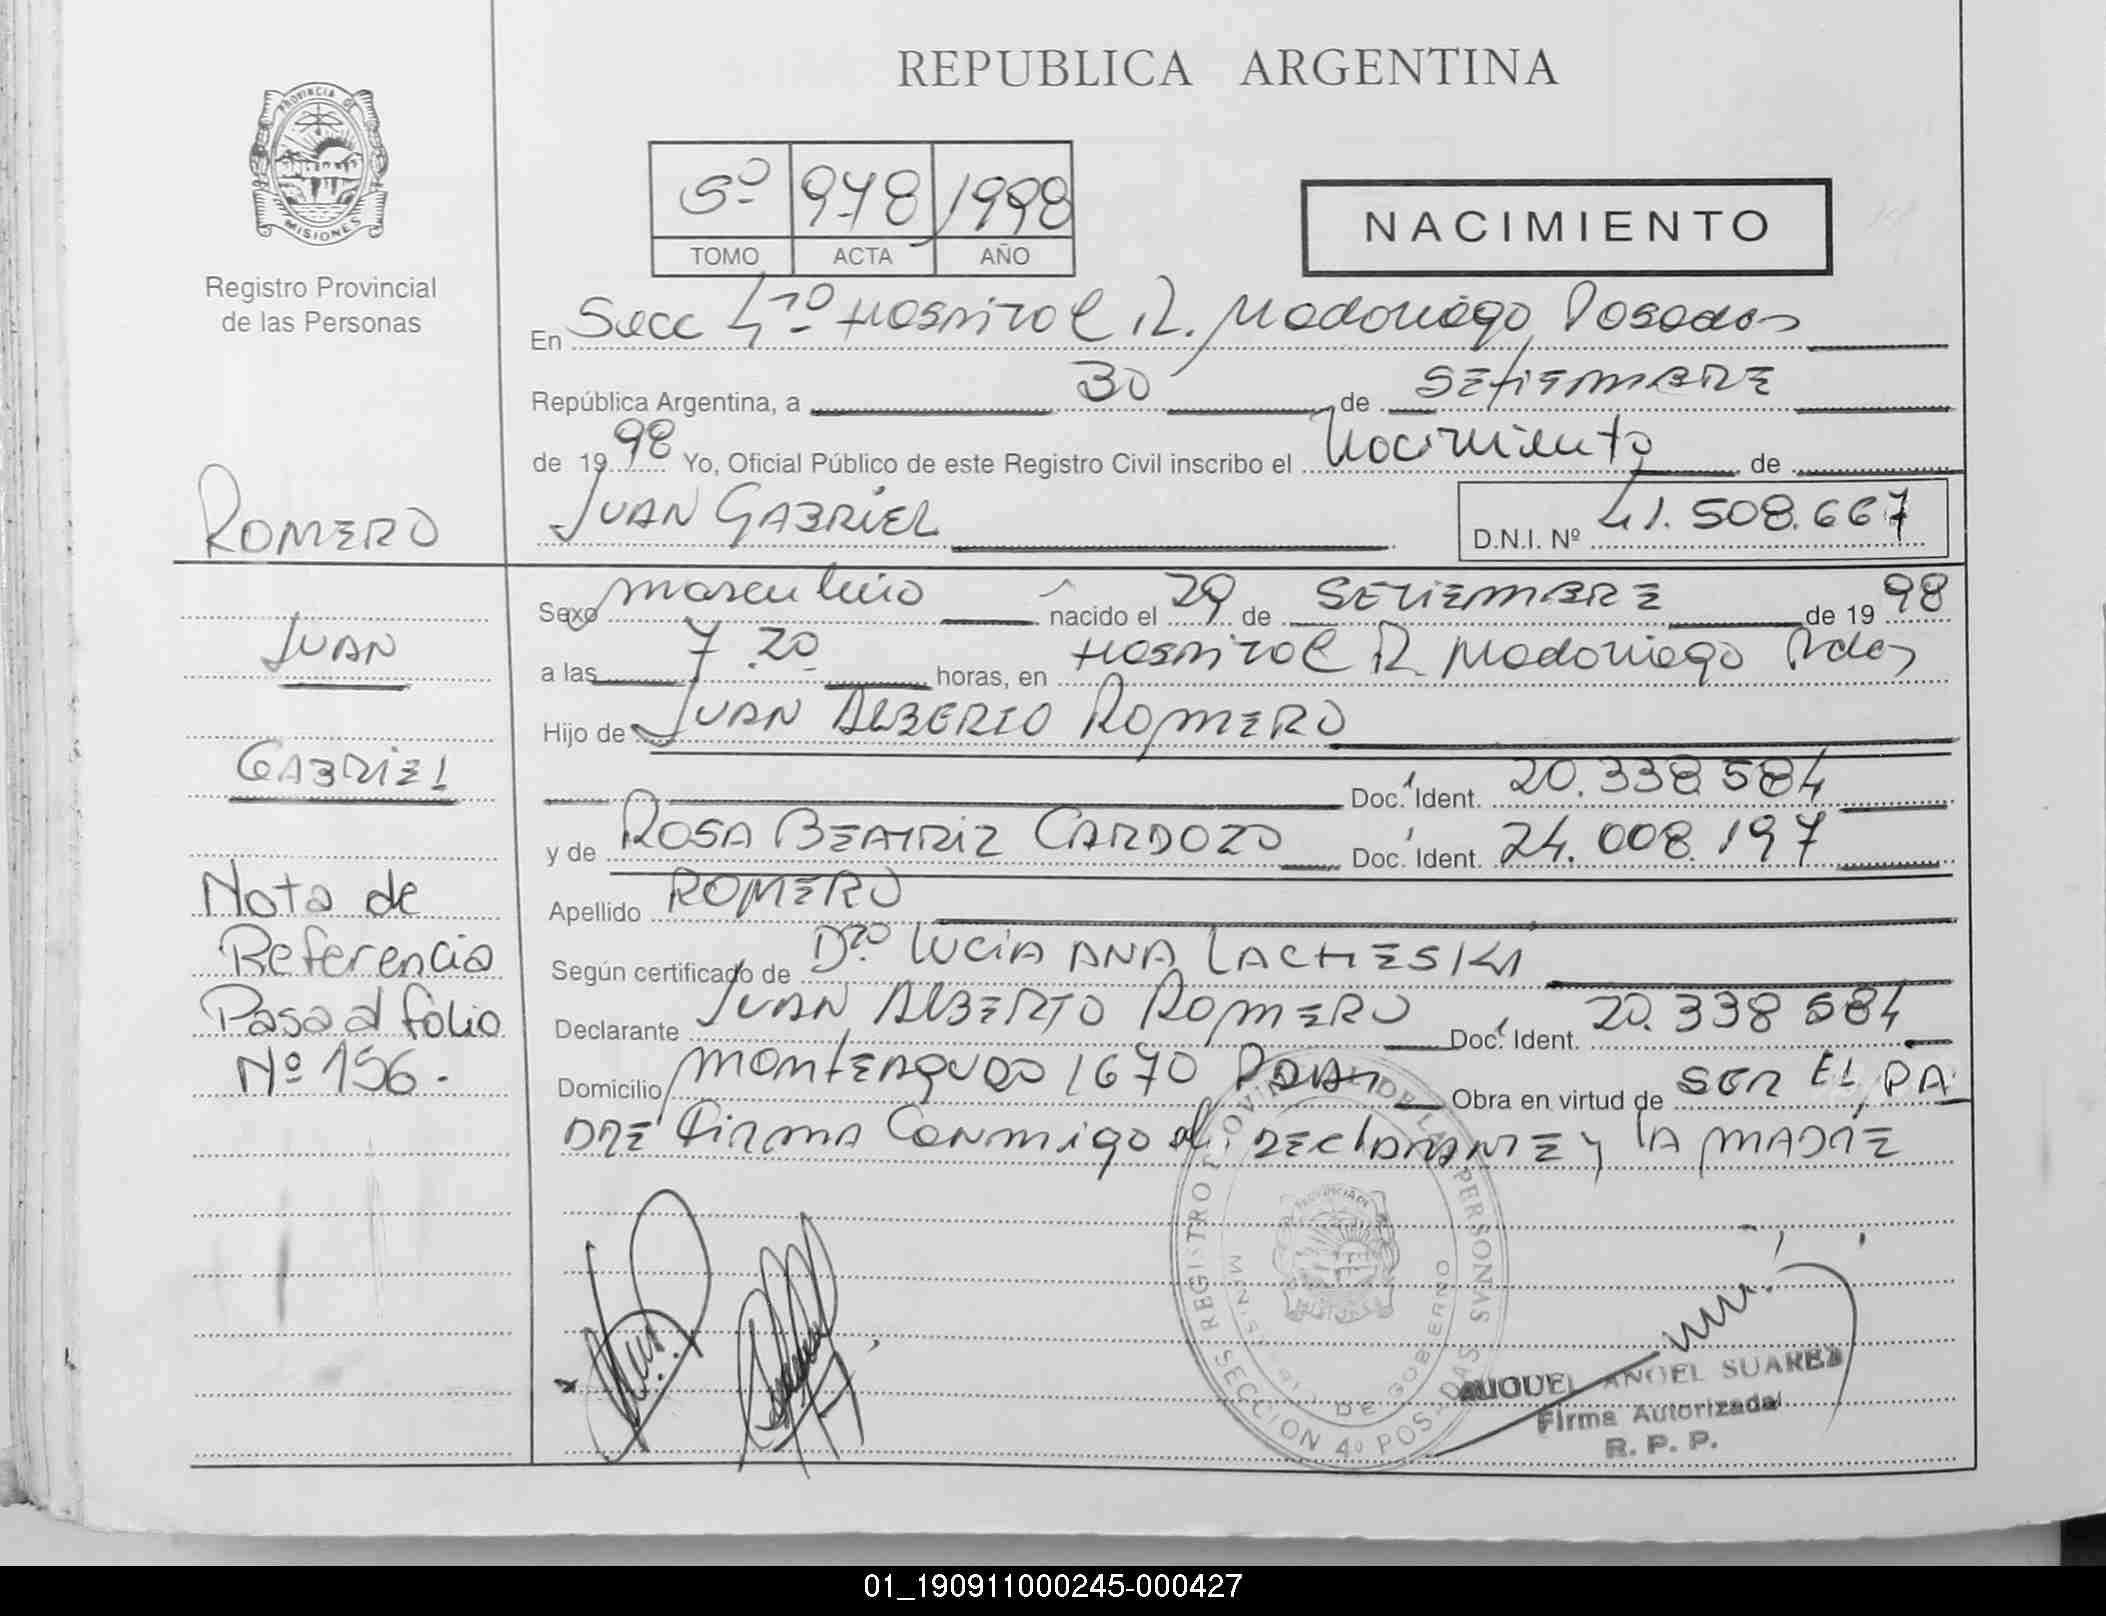 REPUBLICA ARGENTINA
PROVINCIA DE
MISIONES
Registro Provincial
de las Personas
5º 978 1998
TOMO ACTA AÑO
NACIMIENTO
En Secc 4ta Hospital R. Madariaga Posadas
República Argentina, a 30 de SETIEMBRE
de 1998 Yo, Oficial Público de este Registro Civil inscribo el Nacimiento de
ROMERO
JUAN GABRIEL
D.N.I. Nº 41.508.667
Sexo masculino nacido el 29 de SETIEMBRE de 1998
JUAN
a las 7.20 horas, en Hospital R Madariaga Pdas
Hijo de JUAN ALBERTO ROMERO
GABRIEL
Doc. Ident. 20.338 584
y de ROSA BEATRIZ CARDOZO Doc. Ident. 24.008.197
Nota de
Referencia
Pasa al folio
Nº 156.
Apellido ROMERO
Según certificado de Dra. LUCIA ANA LACHESKI
Declarante JUAN ALBERTO ROMERO Doc. Ident. 20.338 584
Domicilio MONTEAGUDO 1670 PDAS Obra en virtud de SER El PA
DRE FIRMA CONMIGO el DECLARANTE y LA MADRE
REGISTRO PROVINCIAL DE LAS PERSONAS
MINISTERIO DE GOBIERNO
SECCION 4º POSADAS
MIGUEL ANGEL SUAREZ
Firma Autorizada
R. P. P.
01_190911000245-000427